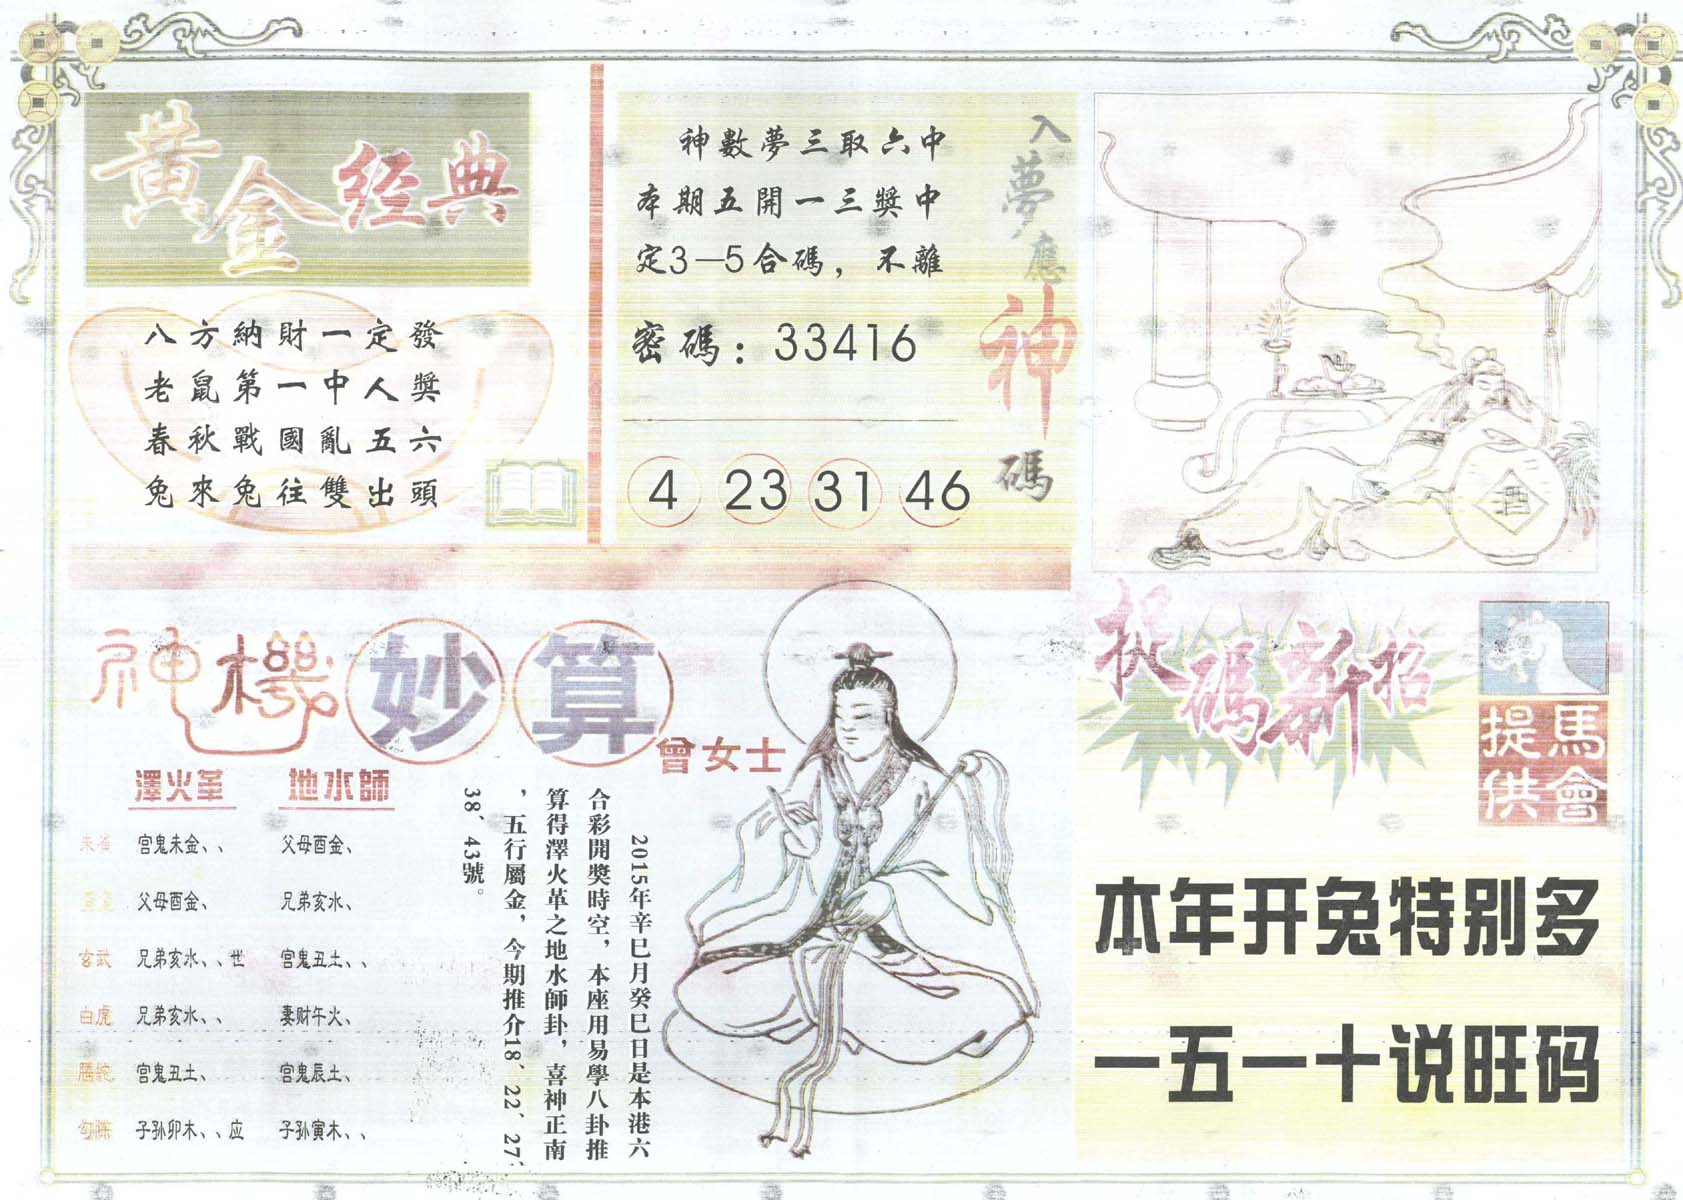 黃金经典
八方納財一定發
老鼠第一中人獎
春秋戰國亂五六
兔來兔往雙出頭
神數夢三取六中
本期五開一三獎中
定3—5合碼，不離
密碼：33416
4 23 31 46
入夢應神碼
酒
神機妙算
曾女士
澤火革 地水師
朱雀 官鬼未金、、 父母酉金、
父母酉金、 兄弟亥水、
玄武 兄弟亥水、、世 官鬼丑土、、
白虎 兄弟亥水、、 妻财午火、
騰蛇 官鬼丑土、 官鬼辰土、
勾陈 子孙卯木、、应 子孙寅木、、
2015年辛巳月癸巳日是本港六
合彩開獎時空，本座用易學八卦推
算得澤火革之地水師卦，喜神正南
，五行屬金，今期推介18、22、27、
38、43號。
捉碼新招
馬會提供
本年开兔特别多
一五一十说旺码